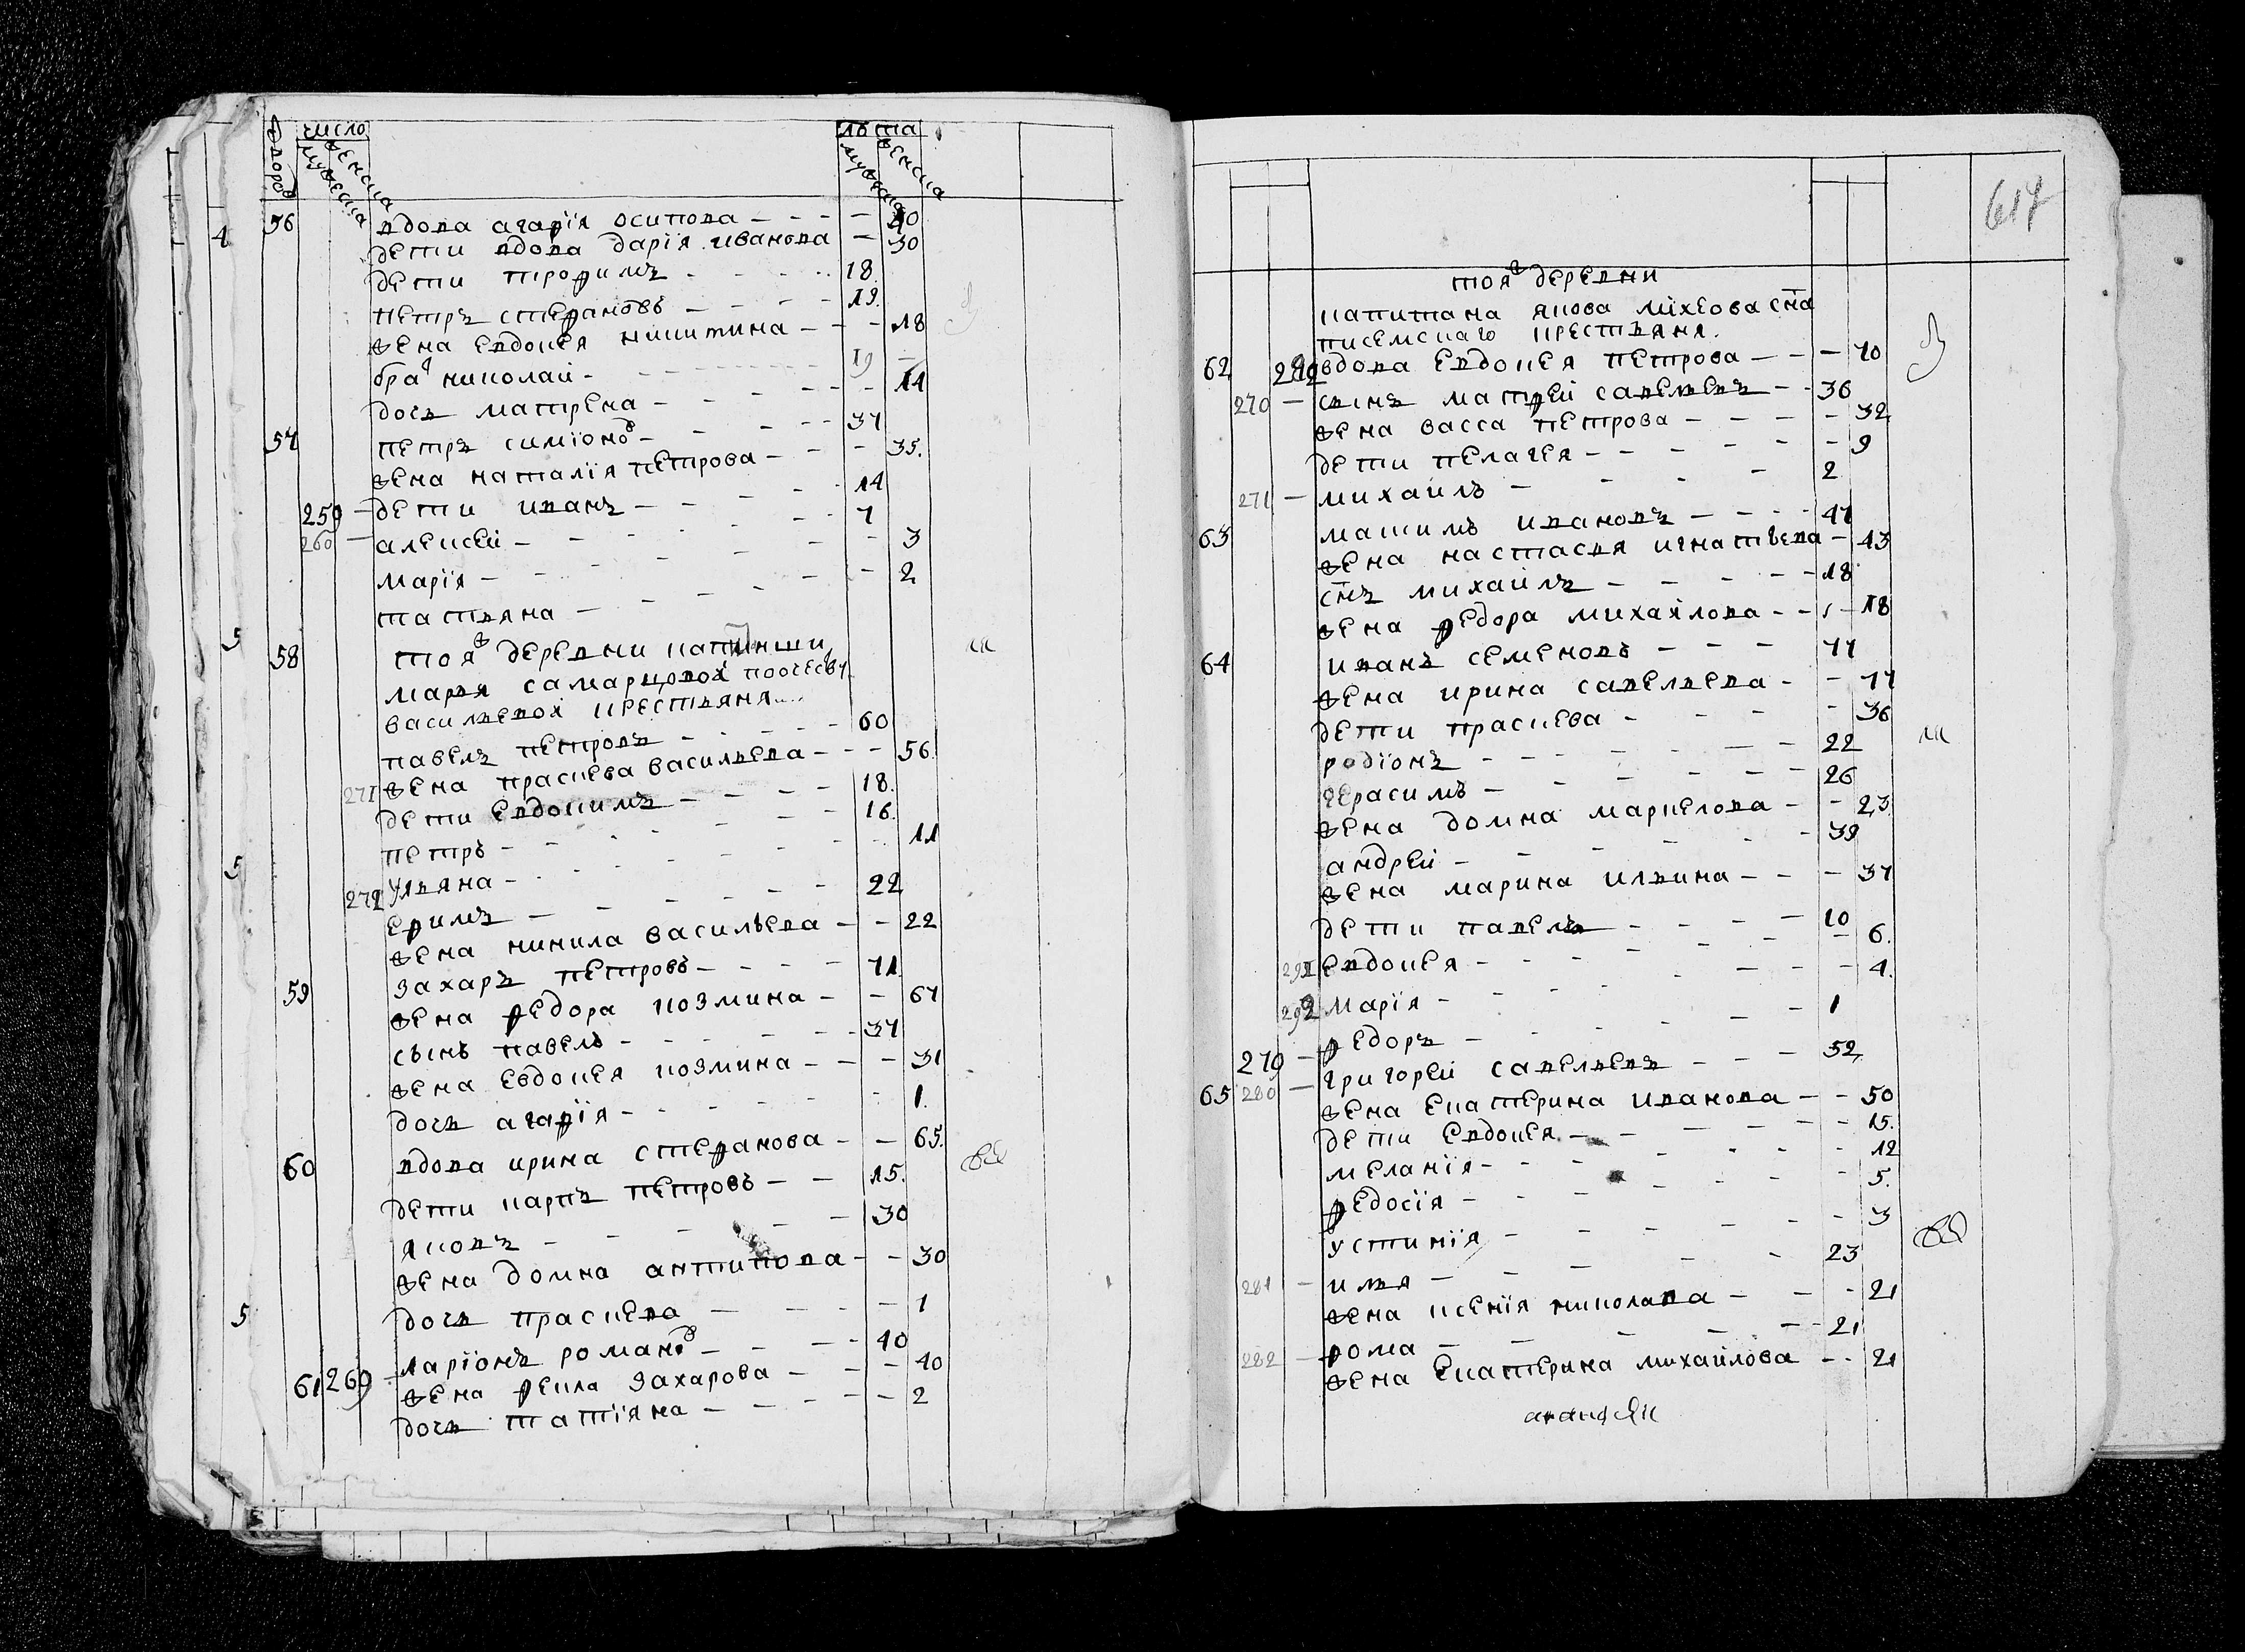 дворов число лѣта
мужеска женска мужеска женска
56 вдова агафїя осипова - - - - 40
дети вдова дарїя иванова - 30
дети трофимъ - - - 18
петръ стефановъ - - - - 19
жена евдокея никитина - - - 18
братъ николай - - - 19 -
дочь матрена - - - - - 14
57 петръ симїоновъ - - - - 37
жена наталїя петрова - - - 35
259 - дети иванъ - - - - 14
260 - алексей - - - - - 7
марїя - - - - - - 3
татьяна - - - - - 2
58 тояж деревни капитанши
марья самарцовой
васильевой крестьяня
павелъ петровъ - - - - 60
жена прасковя васильева - - - 56
271 дети евдокимъ - - - - 18
петръ - - - - - 16
ульяна - - - - - 11
272 ефимъ - - - - 22
жена никила васильева - - 22
59 захаръ петровъ - - - - 71
жена федора козмина - - 67
сынъ павелъ - - - - - 37
жена евдокея козмина - - - 31
дочь агафїя - - - - - 1
60 вдова ирина стефанова - - 65
дети карпъ петровъ - - 15
яковъ - - - - 30
жена домна антипова - - 30
дочь прасковя - - - - 1
61 269 - ларїонъ романовъ - - - - 40
жена фекла захарова - - - 40
дочь татїяна - - - - - 2
4
5
5
5
617
тояж деревни
капитана якова михеова сна
писемскаго крестьяня
62 290 вдова евдокея петрова - - - 70
270 - сынъ матфей савельевъ - - 36
жена васса петрова - - - - 32
дети пелагея - - - - - 9
271 - михаилъ - - - 2
63 максимъ ивановъ - - - - 47
жена настасья игнатьева - 43
снъ михаилъ - - - - - 18
жена федора михайлова - - - 18
64 иванъ семеновъ - - - 77
жена ирина савельева - - 77
дети прасковя - - - - 36
родїонъ - - - - - - 22
герасимъ - - - - - - 26
жена домна маркелова - - 23
андрей - - - - - - 39
жена марина ильина - - - 37
дети павелъ - - - - 10
291 евдокея - - - - - - 6
292 марїя - - - - - - 4
279 - федоръ - - - - - - 1
65 280 - григорей савельевъ - - - 52
жена екатерина иванова - - 50
дети евдокея - - - - - 15
меланїя - - - - - - 12
федосїя - - - - - - 5
устинїя - - - - - - 3
281 - илья - - - - - 23
жена ксенїя николава - - - 21
282 - фома - - - - - - 21
жена екатерина михайлова - - 21